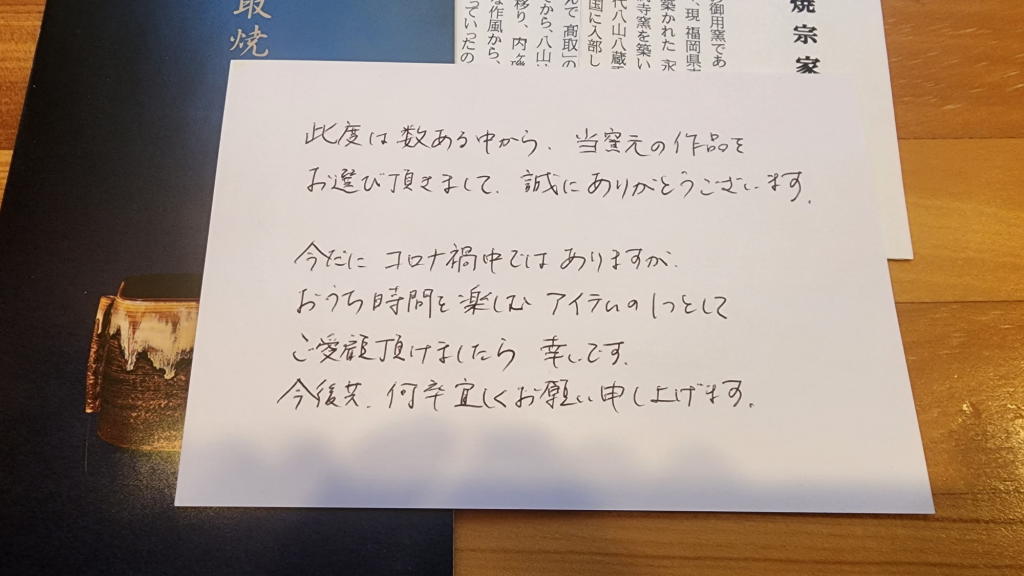 此度は数ある中から、当窯元の作品を
お選び頂きまして、誠にありがとうございます。
今だに コロナ禍中ではありますが、
おうち時間を楽しむ アイテムの1つとして
ご愛顧頂けましたら 幸いです。
今後共、何卒宜しくお願い申し上げます。
取焼
焼宗家
御用窯であ
、現 福岡県
築かれた「永
寺窯を築い
代八山八蔵
国に入部し
んで「髙取」の
てから、八山は
移り、内ヶ磯
な作風から、
っていったの